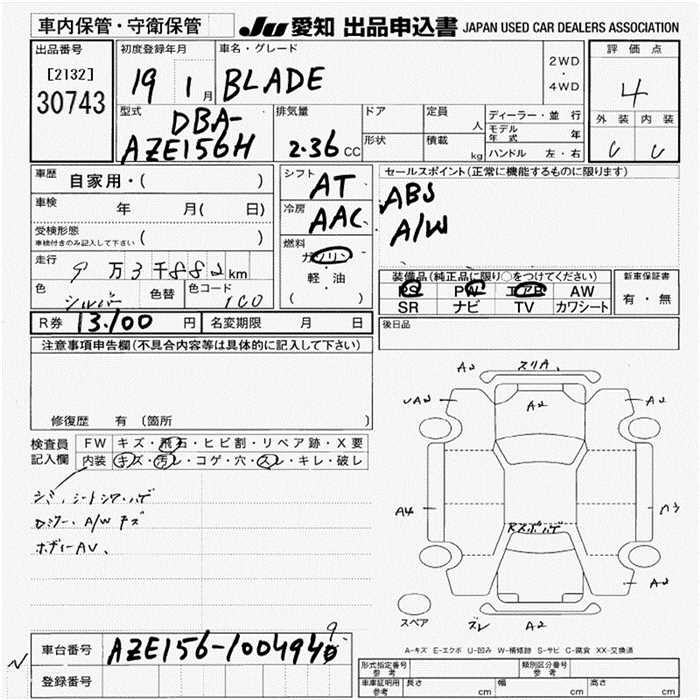 車内保管・守衛保管
JU 愛知 出品申込書 JAPAN USED CAR DEALERS ASSOCIATION
出品番号
[2132]
30743
初度登録年月
19 1月
車名・グレード
BLADE
2WD
・
4WD
評価点
4
外装 内装
C C
型式
DBA-
AZE156H
排気量
2.36 CC
ドア
定員 人
形状
積載 kg
ディーラー・並行
モデル年式 年
ハンドル 左・右
車歴 自家用・( )
車検 年 月( 日)
受検形態
車検付きのみ記入して下さい ( )
走行 9万3千882km
色 シルバー 色替 色コード 1C0
シフト AT
冷房 AAC
燃料
ガソリン
軽油
( )
セールスポイント(正常に機能するものに限ります)
ABS
A/W
装備品(純正品に限り○をつけてください)
PS PW エアB AW
SR ナビ TV カワシート
新車保証書
有・無
R券 13,100円 名変期限 月 日
後日品
注意事項申告欄(不具合内容等は具体的に記入して下さい)
修復歴 有 〔箇所
検査員
記入欄
FW キズ・飛石・ヒビ割・リペア跡・X要
内装 キズ・汚レ・コゲ・穴・スレ・キレ・破レ
シミ、シートシワ・ハゲ
A/W キズ
ボディーAV、
スリA、
A2
A2
A2
A4
A2
A2
スペア
ズレ
A-キズ E-エクボ U-凹み W-補修跡 S-サビ C-腐食 XX-交換済
車台番号 AZE156-1004949
登録番号
形式指定番号
参考
類別区分番号
参考
車庫証明用
参考
長さ cm 幅 cm 高さ cm